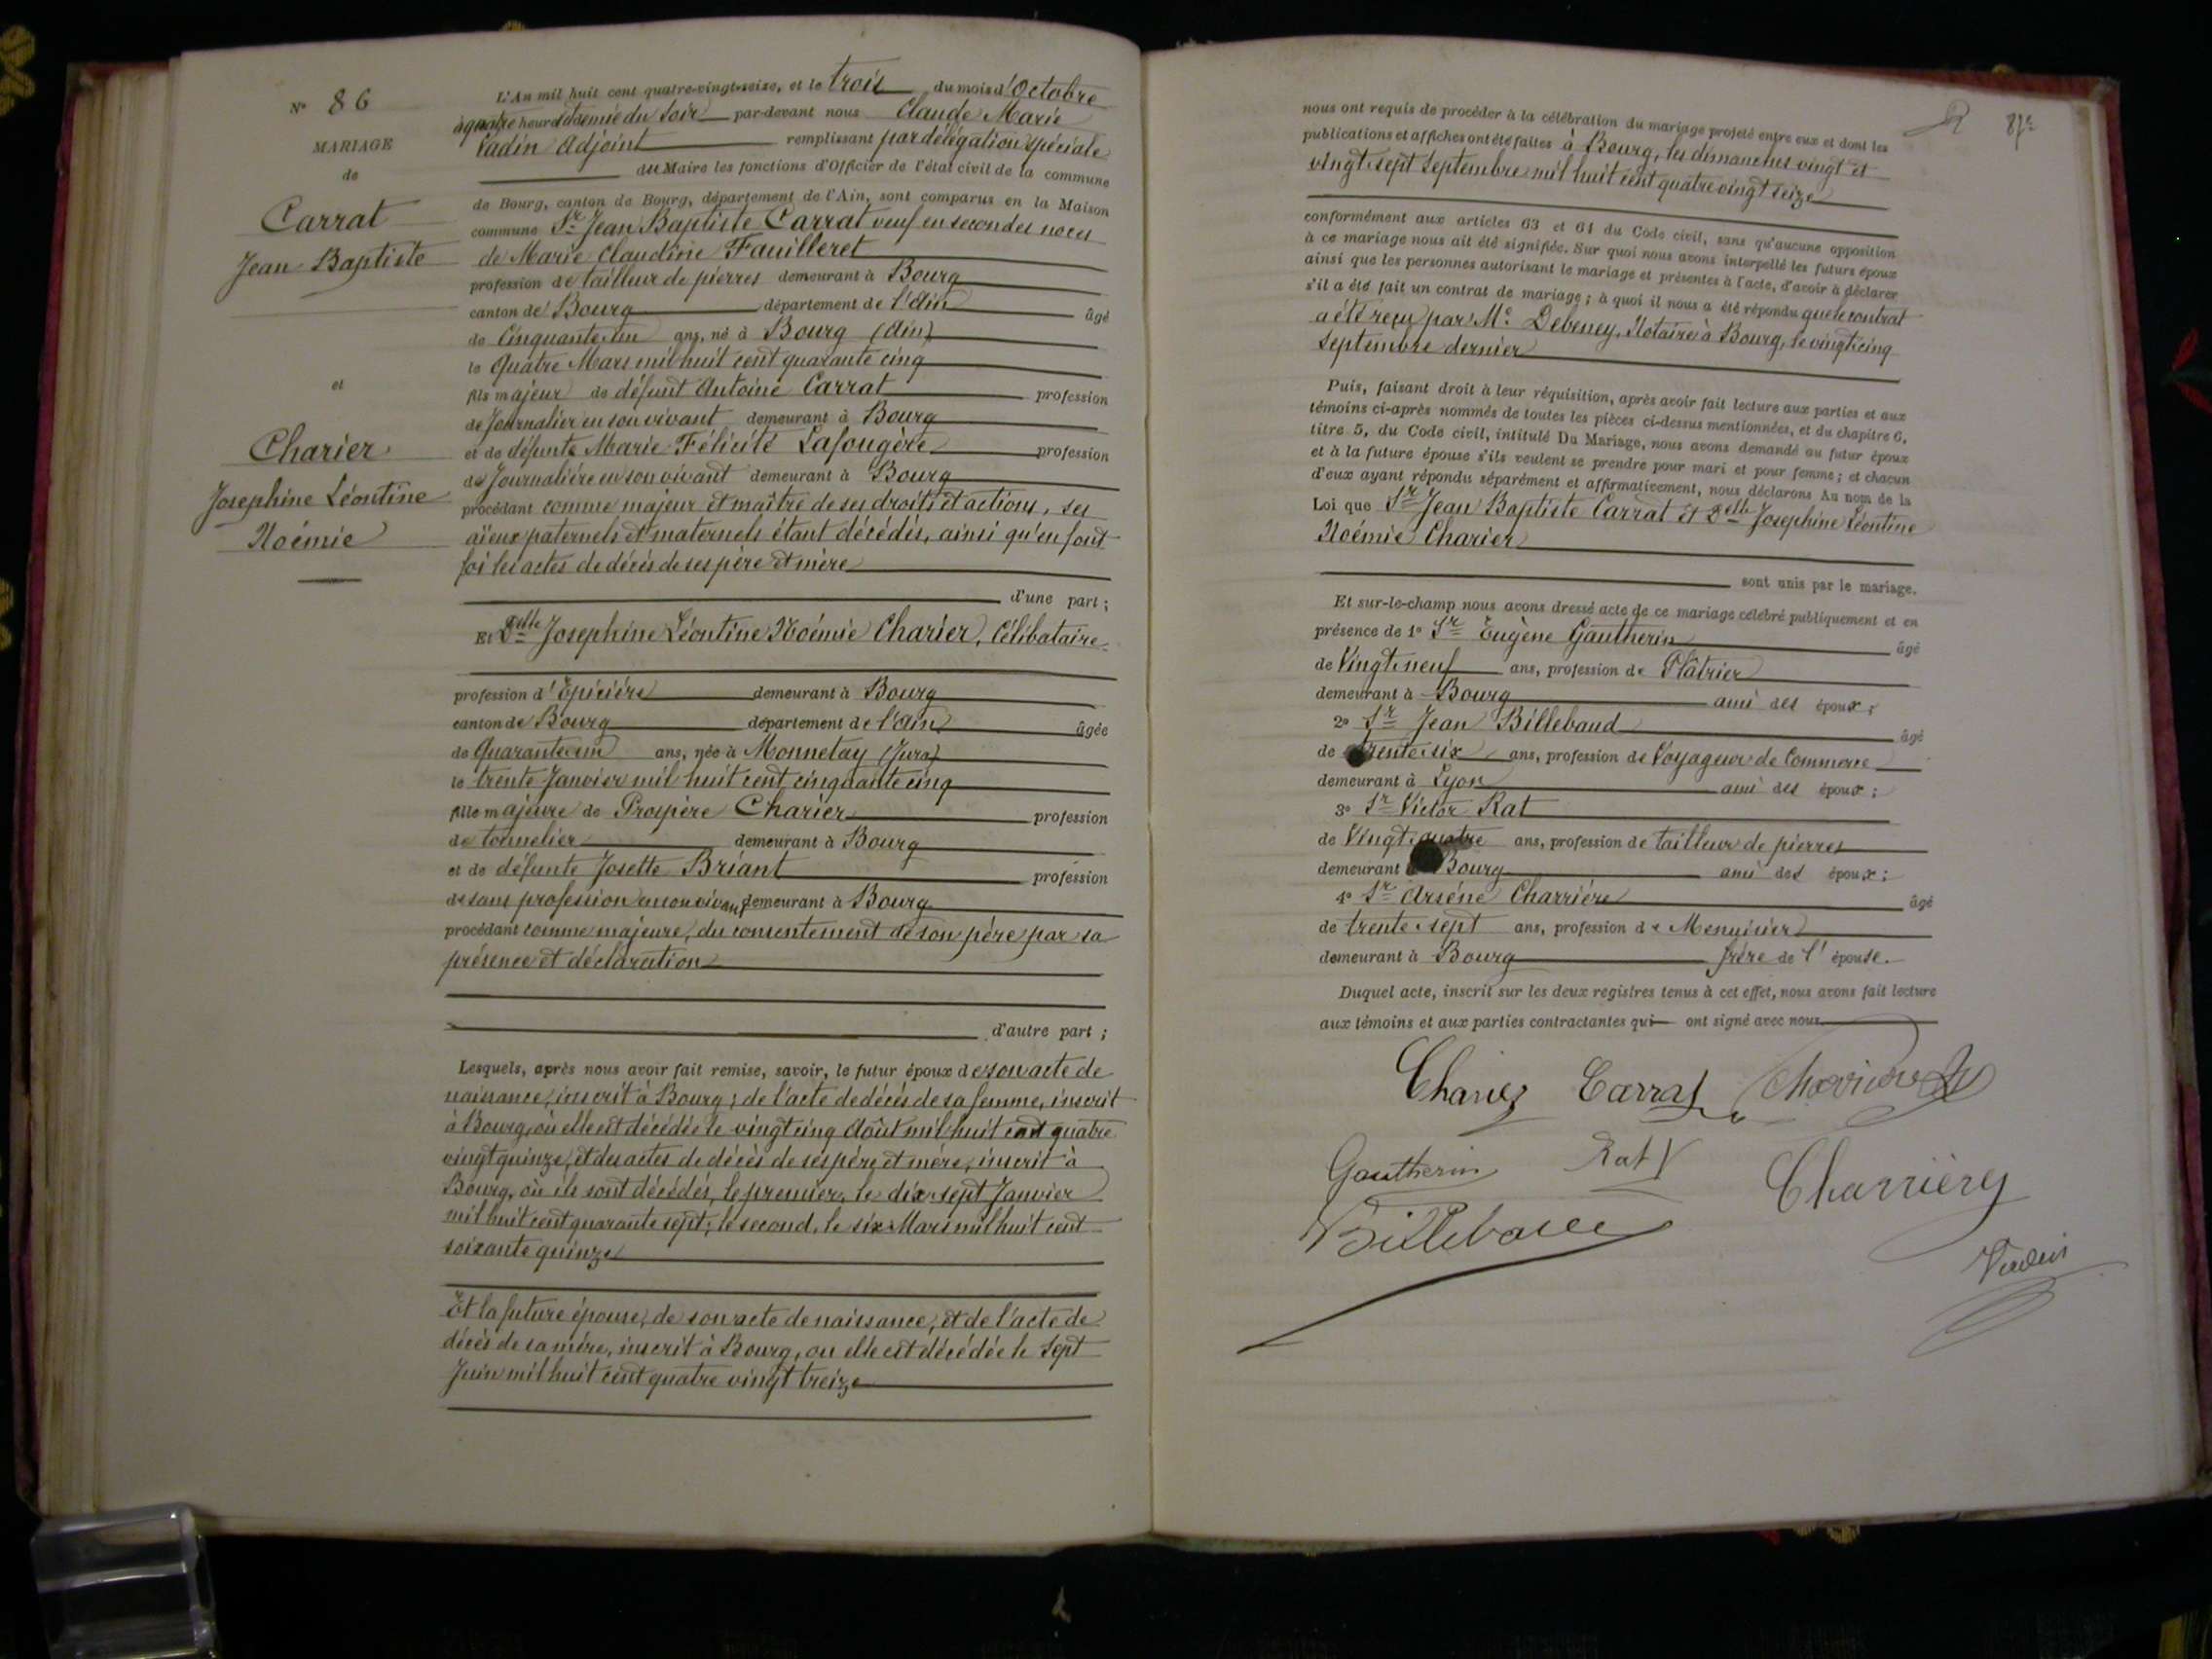 N° 86
MARIAGE
de
Carrat
Jean Baptiste
et
Charier
Josephine Léontine
Noémie
L'An mil huit cent quatre-vingt-seize, et le trois du mois d'Octobre
à quatre heures et demie du soir par-devant nous Claude Marie
Vadin Adjoint remplissant par délégation spéciale
du Maire les fonctions d'Officier de l'état civil de la commune
de Bourg, canton de Bourg, département de l'Ain, sont comparus en la Maison
commune Sr Jean Baptiste Carrat veuf en secondes noces
de Marie Claudine Fauilleret
profession de tailleur de pierres demeurant à Bourg
canton de Bourg département de l'Ain âgé
de Cinquante un ans, né à Bourg (Ain)
le Quatre Mars mil huit cent quarante cinq
fils majeur de défunt Antoine Carrat profession
de Journalier en son vivant demeurant à Bourg
et de défunte Marie Félicité Lafougère profession
de Journalière en son vivant demeurant à Bourg
procédant comme majeur et maître de ses droits et actions, ses
aïeux paternels et maternels étant décédés, ainsi qu'en font
foi les actes de décès de ses père et mère
d'une part ;
Et Delle Josephine Léontine Noémie Charier, Célibataire
profession d'Epicière demeurant à Bourg
canton de Bourg département de l'Ain âgée
de Quarante un ans, née à Monnetay (Jura)
le trente Janvier mil huit cent cinquante cinq
fille majeure de Prospère Charier profession
de tonnelier demeurant à Bourg
et de défunte Josette Briant profession
de sans profession en son vivant demeurant à Bourg
procédant comme majeure, du consentement de son père par sa
présence et déclaration
d'autre part ;
Lesquels, après nous avoir fait remise, savoir, le futur époux de son acte de
naissance, inscrit à Bourg ; de l'acte de décès de sa femme, inscrit
à Bourg, où elle est décédée le vingt cinq Août mil huit cent quatre
vingt quinze, et des actes de décès de ses père et mère, inscrit à
Bourg, où ils sont décédés, le premier, le dix sept Janvier
mil huit cent quarante sept ; le second, le six Mars mil huit cent
soixante quinze
Et la future épouse, de son acte de naissance, et de l'acte de
décès de sa mère, inscrit à Bourg, ou elle est décédée le sept
Juin mil huit cent quatre vingt treize
nous ont requis de procéder à la célébration du mariage projeté entre eux et dont les
publications et affiches ont été faites à Bourg, les dimanches vingt et
vingt sept Septembre mil huit cent quatre vingt seize
conformément aux articles 63 et 64 du Code civil, sans qu'aucune opposition
à ce mariage nous ait été signifiée. Sur quoi nous avons interpellé les futurs époux
ainsi que les personnes autorisant le mariage et présentes à l'acte, d'avoir à déclarer
s'il a été fait un contrat de mariage ; à quoi il nous a été répondu que le contrat
a été reçu par Me Debeney, Notaire à Bourg, le vingt cinq
Septembre dernier
Puis, faisant droit à leur réquisition, après avoir fait lecture aux parties et aux
témoins ci-après nommés de toutes les pièces ci-dessus mentionnées, et du chapitre 6,
titre 5, du Code civil, intitulé Du Mariage, nous avons demandé au futur époux
et à la future épouse s'ils veulent se prendre pour mari et pour femme ; et chacun
d'eux ayant répondu séparément et affirmativement, nous déclarons Au nom de la
Loi que Sr Jean Baptiste Carrat et Delle Josephine Léontine
Noémie Charier
sont unis par le mariage.
Et sur-le-champ nous avons dressé acte de ce mariage célébré publiquement et en
présence de 1° Sr Eugène Gautherin âgé
de Vingt neuf ans, profession de Plâtrier
demeurant à Bourg ami des époux ;
2° Sr Jean Billebaud âgé
de trente six ans, profession de Voyageur de Commerce
demeurant à Lyon ami des époux ;
3° Sr Victor Rat
de Vingt quatre ans, profession de tailleur de pierres
demeurant Bourg ami des époux ;
4° Sr Arsène Charrière âgé
de trente sept ans, profession de Menuisier
demeurant à Bourg frère de l'épouse.
Duquel acte, inscrit sur les deux registres tenus à cet effet, nous avons fait lecture
aux témoins et aux parties contractantes qui ont signé avec nous.
Charier Carrat
Gautherin Rat V Charrière
Billebaud
Vadin